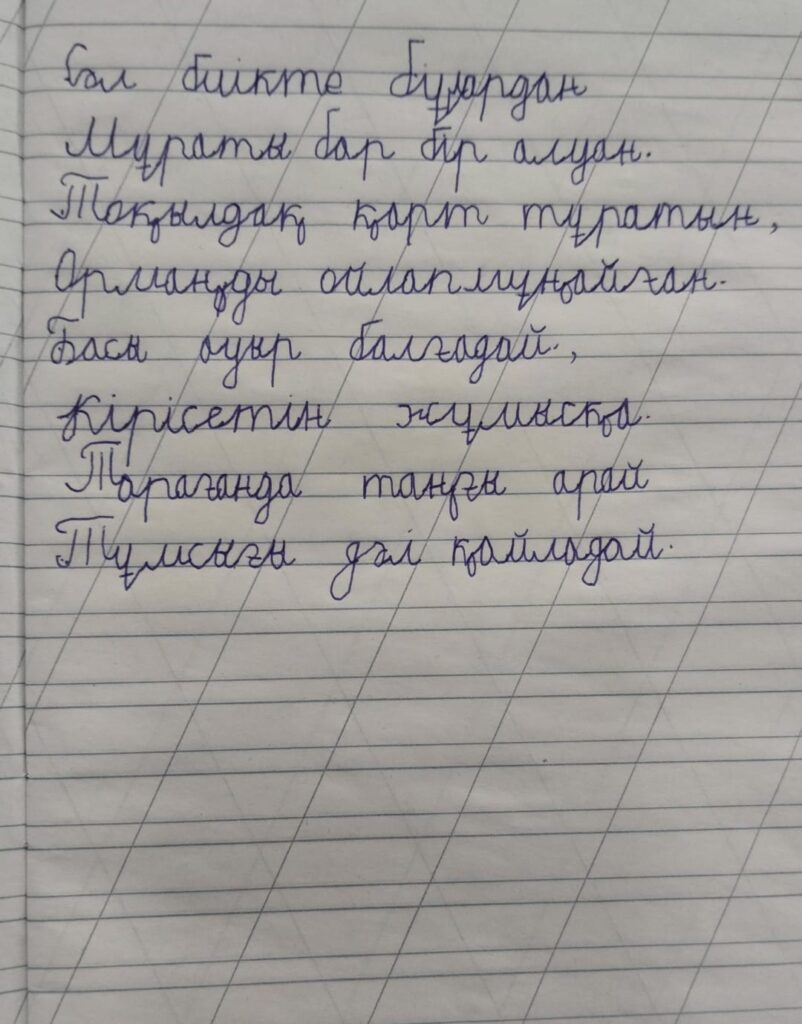 бәл биікте бұлардан
Мұраты бар бір алуан.
Тоқылдақ қарт тұратын,
Орманды ойлапмұңайған.
Басы ауыр балғадай.,
Кірісетін жұмысқа.
Тарағанда таңғы арай
Тұмсығы дәл қайладай.